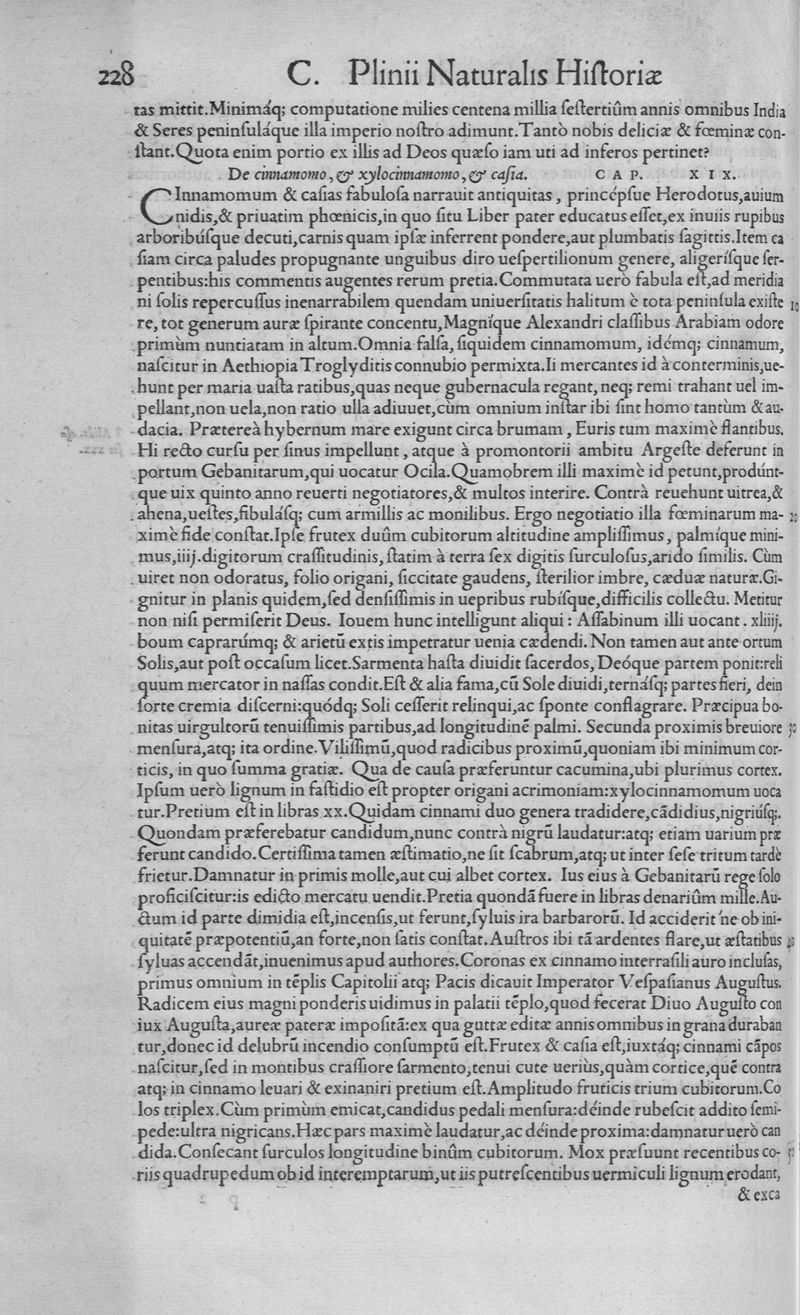 228 C. Plinii Naturalis Hiſtoriæ
tas mittit.Minimáq; computatione milies centena millia ſeſtertiûm annis omnibus India
& Seres peninſuláque illa imperio noſtro adimunt.Tantò nobis deliciæ & fœminæ con-
ſtant.Quota enim portio ex illis ad Deos quæſo iam uti ad inferos pertinet?
De cinnamomo, & xylocinnamomo, & caſia. C A P. X I X.
CInnamomum & caſias fabuloſa narrauit antiquitas, princépſue Herodotus,auium
nidis,& priuatim phœnicis,in quo ſitu Liber pater educatus eſſet,ex inuiis rupibus
arboribúſque decuti,carnis quam ipſæ inferrent pondere,aut plumbatis ſagittis.Item ca
ſiam circa paludes propugnante unguibus diro ueſpertilionum genere, aligeríſque ſer-
pentibus:his commentis augentes rerum pretia.Commutata uerò fabula eſt,ad meridia
ni ſolis repercuſſus inenarrabilem quendam uniuerſitatis halitum è tota peninſula exiſte 10
re, tot generum auræ ſpirante concentu,Magníque Alexandri claſſibus Arabiam odore
primùm nuntiatam in altum.Omnia falſa, ſiquidem cinnamomum, idémq; cinnamum,
naſcitur in Aethiopia Troglyditis connubio permixta.Ii mercantes id à conterminis,ue-
hunt per maria uaſta ratibus,quas neque gubernacula regant, neq; remi trahant uel im-
pellant,non uela,non ratio ulla adiuuet,cùm omnium inſtar ibi ſint homo tantùm & au-
dacia. Prætereà hybernum mare exigunt circa brumam, Euris tum maximè flantibus.
Hi recto curſu per ſinus impellunt, atque à promontorii ambitu Argeſte deferunt in
portum Gebanitarum,qui uocatur Ocila.Quamobrem illi maximè id petunt,prodúnt-
que uix quinto anno reuerti negotiatores,& multos interire. Contrà reuehunt uitrea,&
ahena,ueſtes,fibuláſq; cum armillis ac monilibus. Ergo negotiatio illa fœminarum ma-
ximè fide conſtat.Ipſe frutex duûm cubitorum altitudine ampliſſimus, palmíque mini-
mus,iiij.digitorum craſſitudinis, ſtatim à terra ſex digitis ſurculoſus,arido ſimilis. Cùm
uiret non odoratus, folio origani, ſiccitate gaudens, ſterilior imbre, cæduæ naturæ.Gi-
gnitur in planis quidem,ſed denſiſſimis in uepribus rubíſque,difficilis collectu. Metitur
non niſi permiſerit Deus. Iouem hunc intelligunt aliqui: Aſſabinum illi uocant. xliiij.
boum caprarúmq; & arietū extis impetratur uenia cædendi. Non tamen aut ante ortum
Solis,aut poſt occaſum licet.Sarmenta haſta diuidit ſacerdos, Deóque partem ponit:reli
quum mercator in naſſas condit.Eſt & alia fama,cū Sole diuidi,ternáſq; partes fieri, dein
ſorte cremia diſcerni:quódq; Soli ceſſerit relinqui,ac ſponte conflagrare. Præcipua bo-
nitas uirgultorū tenuiſſimis partibus,ad longitudinē palmi. Secunda proximis breuiore 30
menſura,atq; ita ordine.Viliſſimū,quod radicibus proximū,quoniam ibi minimum cor-
ticis, in quo ſumma gratiæ. Qua de cauſa præferuntur cacumina,ubi plurimus cortex.
Ipſum uerò lignum in faſtidio eſt propter origani acrimoniam:xylocinnamomum uoca
tur.Pretium eſt in libras xx.Quidam cinnami duo genera tradidere,cādidius,nigriúſq;.
Quondam præferebatur candidum,nunc contrà nigrū laudatur:atq; etiam uarium præ
ferunt candido.Certiſſima tamen æſtimatio,ne ſit ſcabrum,atq; ut inter ſeſe tritum tardè
frietur.Damnatur in primis molle,aut cui albet cortex. Ius eius à Gebanitarū rege ſolo
proficiſcitur:is edicto mercatu uendit.Pretia quondā fuere in libras denariûm mille.Au-
ctum id parte dimidia eſt,incenſis,ut ferunt,ſyluis ira barbarorū. Id acciderit ne ob ini-
quitatē præpotentiū,an forte,non ſatis conſtat.Auſtros ibi tā ardentes flare,ut æſtatibus 40
ſyluas accendāt,inuenimus apud authores.Coronas ex cinnamo interraſili auro incluſas,
primus omnium in tēplis Capitolii atq; Pacis dicauit Imperator Veſpaſianus Auguſtus.
Radicem eius magni ponderis uidimus in palatii tēplo,quod fecerat Diuo Auguſto con
iux Auguſta,aureæ pateræ impoſitā:ex qua guttæ editæ annis omnibus in grana duraban
tur,donec id delubrū incendio conſumptū eſt.Frutex & caſia eſt,iuxtáq; cinnami cāpos
naſcitur,ſed in montibus craſſiore ſarmento,tenui cute ueriùs,quàm cortice,quē contra
atq; in cinnamo leuari & exinaniri pretium eſt.Amplitudo fruticis trium cubitorum.Co
los triplex.Cùm primùm emicat,candidus pedali menſura:déinde rubeſcit addito ſemi-
pede:ultra nigricans.Hæc pars maximè laudatur,ac déinde proxima:damnatur uerò can
dida.Conſecant ſurculos longitudine binûm cubitorum. Mox præſuunt recentibus co-
riis quadrupedum ob id interemptarum,ut iis putreſcentibus uermiculi lignum erodant,
& exca